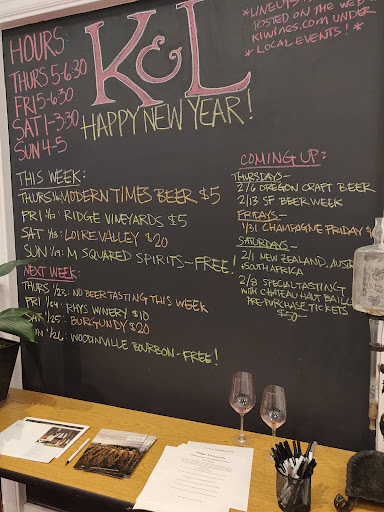 HOURS:
THURS 5-6:30
FRI 5-6:30
SAT 1-3:30
SUN 4-5
K&L
HAPPY NEW YEAR!
POSTED ON THE WEB
KLWINES.COM UNDER
*LOCAL EVENTS!*
THIS WEEK:
THURS 1/16: MODERN TIMES BEER $5
FRI 1/17: RIDGE VINEYARDS $5
SAT 1/18: LOIRE VALLEY $20
SUN 1/19: M SQUARED SPIRITS-FREE!
NEXT WEEK:
THURS 1/23: NO BEER TASTING THIS WEEK
FRI 1/24: RHYS WINERY $10
SAT 1/25: BURGUNDY $20
SUN 1/26: WOODINVILLE BOURBON-FREE!
COMING UP:
THURSDAYS-
2/6 OREGON CRAFT BEER
2/13 SF BEER WEEK
FRIDAYS-
1/31 CHAMPAGNE FRIDAY
SATURDAYS-
2/1 NEW ZEALAND,
& SOUTH AFRICA
2/8 SPECIAL TASTING
WITH CHATEAU HAUT BAILLY
PRE-PURCHASE TICKETS
$50-